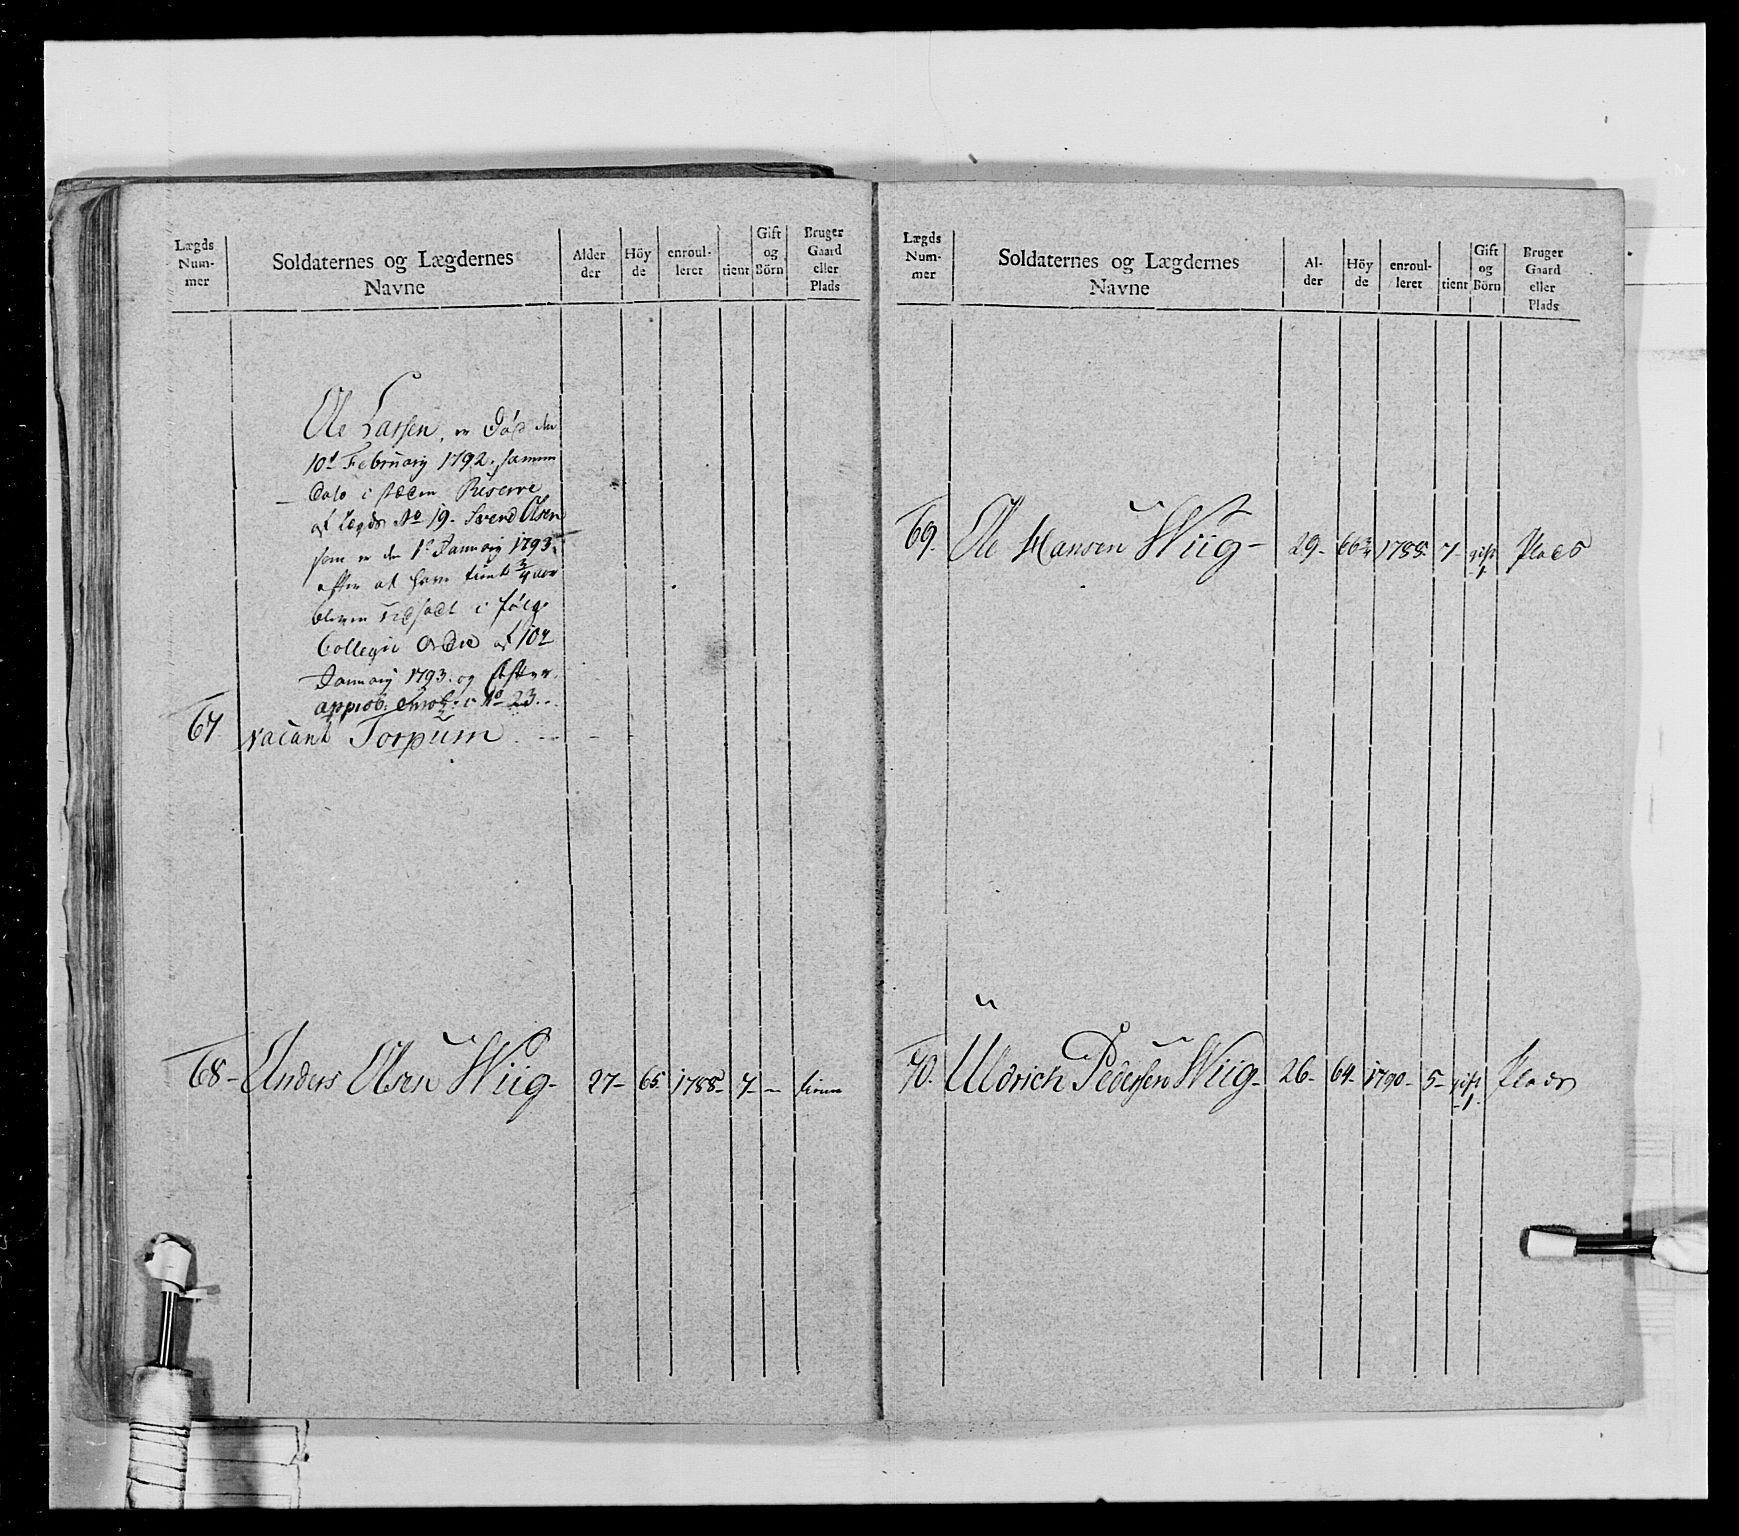 Lægds
Num-
mer
Soldaternes og Lægdernes
Navne
Alder
der
Höy
de
enroul-
leret
tient
Gift
og
Börn
Bruger
Gaard
eller
Plads
Ole Larsen, er Död den
10d February 1792. samme
Dato i steden Reserve
af Lægds No 19. Svend Olsen
som er den 1d January 1793.
efter at have tient 3/4 aar
bleven udsadt i følge
Collegii Ordre af
January 1793. og
approb. i No 23.
67 vacant Torpum
68 - Anders Olsen Wiig - 27 - 65 1788 - 7 - - tiener
Lægds
Num-
mer
Soldaternes og Lægdernes
Navne
Al-
der
Höy
de
enroul-
leret
tient
Gift
og
Börn
Bruger
Gaard
eller
Plads
69. Ole Hansen Wiig - 29 - 66 3/4 1788 - 7 - gift 1 Plads
70. Uldrich Pedersen Wiig - 26 - 64 - 1790 - 5 - gift 1 Plads